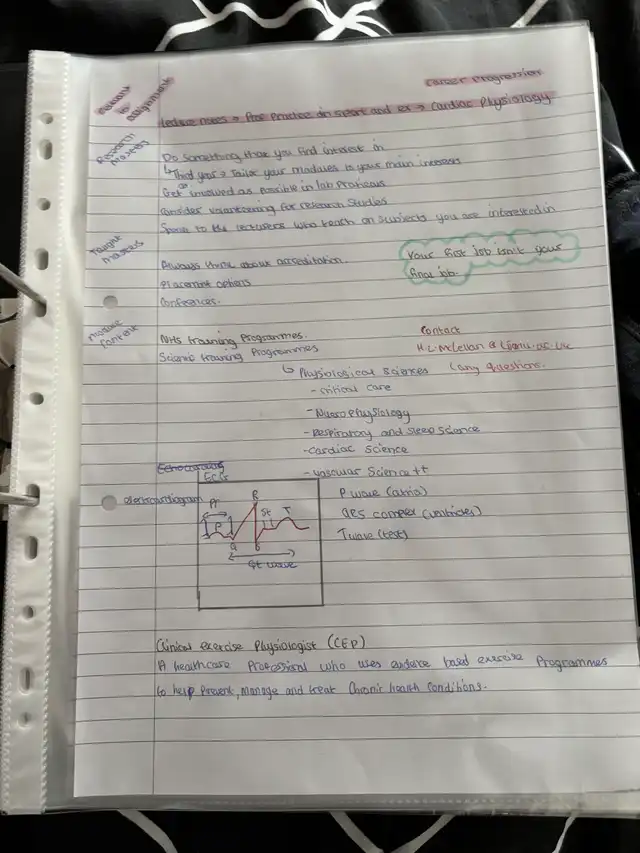 Career Progression
Lecture notes → Prof Practice in sport and ex → Cardiac Physiology
Research Masters
Do something that you find interest in
↳ Third year → Tailor your modules to your main interests
Get as involved as possible in lab
Consider volunteering for research studies
Speak to the lecturers who teach on subjects you are interested in
Taught Masters
Always think about accreditation.
Your first job isn't your
Placement options
final job.
Conferences.
Module Content
NHS training Programmes.
Contact
Scientic training Programmes
(any questions.
↳ Physiological sciences
- critical care
- Nuero Physiology
- Respiratory and sleep science
- Cardiac science
- vascular Science
ECGs
P wave (atria)
QRS (ventricles)
T wave (test)
PR
P
Q
R
S
St
T
Qt wave
Clinical exercise Physiologist (CEP)
A healthcare Professional who uses evidence based exercise Programmes
to help Prevent, Manage and treat Chronic health Conditions.